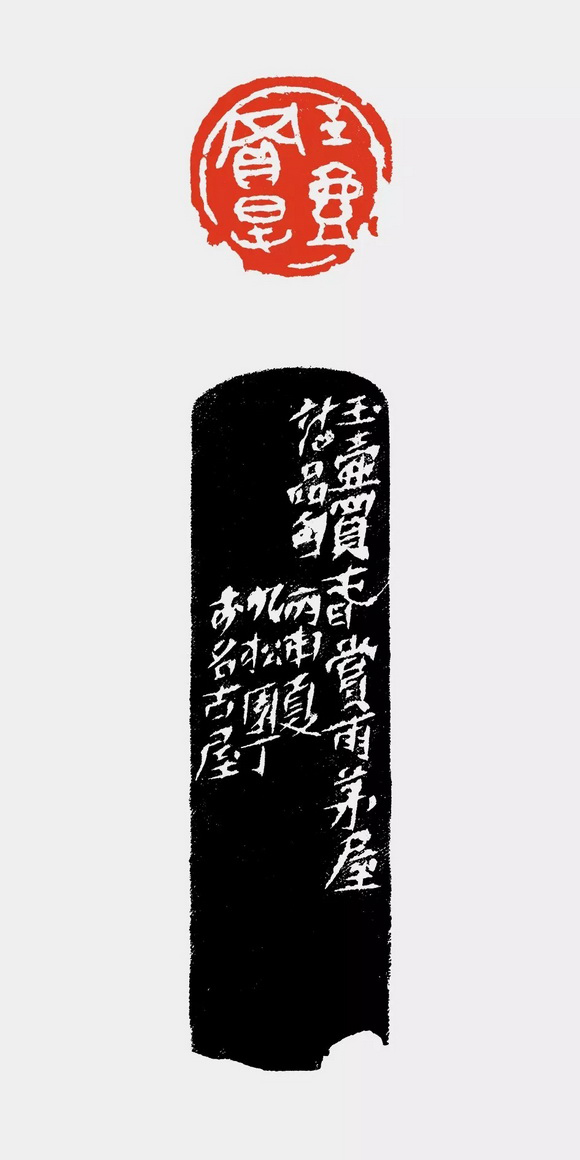 玉壺
買春
玉壺買春賞雨茅屋
詩品句 丙申夏
九松園丁
於名古屋